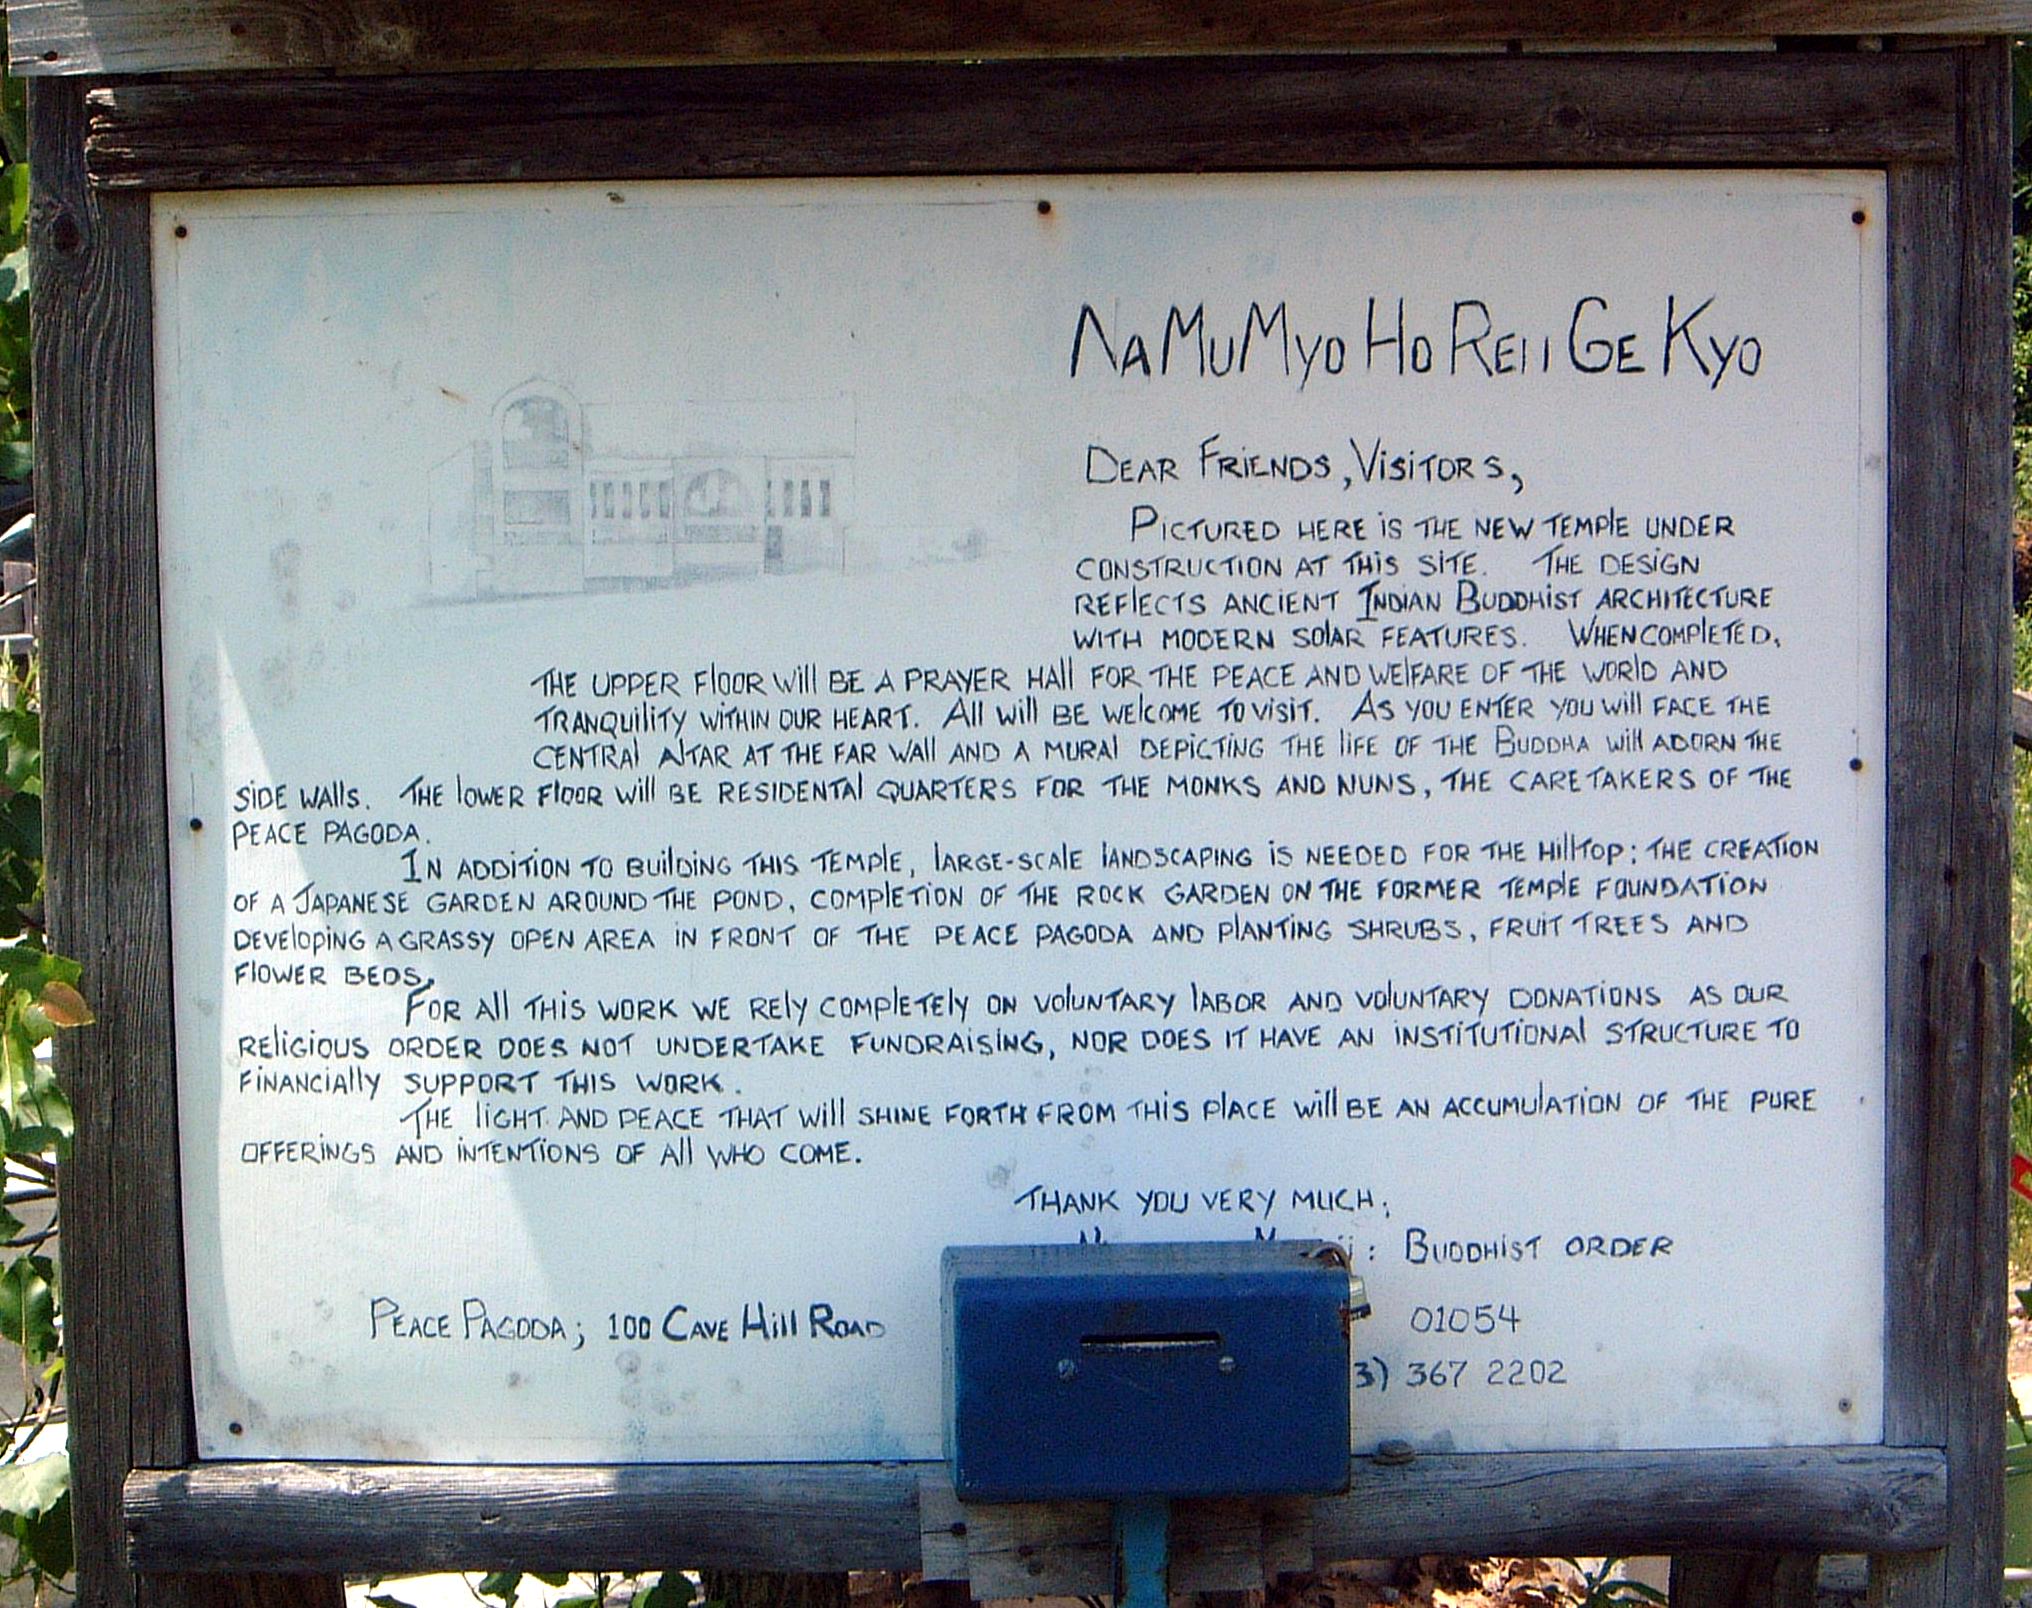 NaMuMyo Ho ReII Ge Kyo
Dear Friends, Visitors,
Pictured here is the new temple under
construction at this site. The design
reflects ancient Indian Buddhist architecture
with modern solar features. When completed,
the upper floor will be a prayer hall for the peace and welfare of the world and
tranquility within our heart. All will be welcome to visit. As you enter you will face the
central altar at the far wall and a mural depicting the life of the Buddha will adorn the
side walls. The lower floor will be residental quarters for the monks and nuns, the caretakers of the
peace pagoda.
In addition to building this temple, large-scale landscaping is needed for the hilltop: the creation
of a Japanese garden around the pond, completion of the rock garden on the former temple foundation
developing a grassy open area in front of the peace pagoda and planting shrubs, fruit trees and
flower beds.
For all this work we rely completely on voluntary labor and voluntary donations as our
religious order does not undertake fundraising, nor does it have an institutional structure to
financially support this work.
The light and peace that will shine forth from this place will be an accumulation of the pure
offerings and intentions of all who come.
Thank you very much;
Buddhist order
Peace Pagoda; 100 Cave Hill Road 01054
3) 367 2202